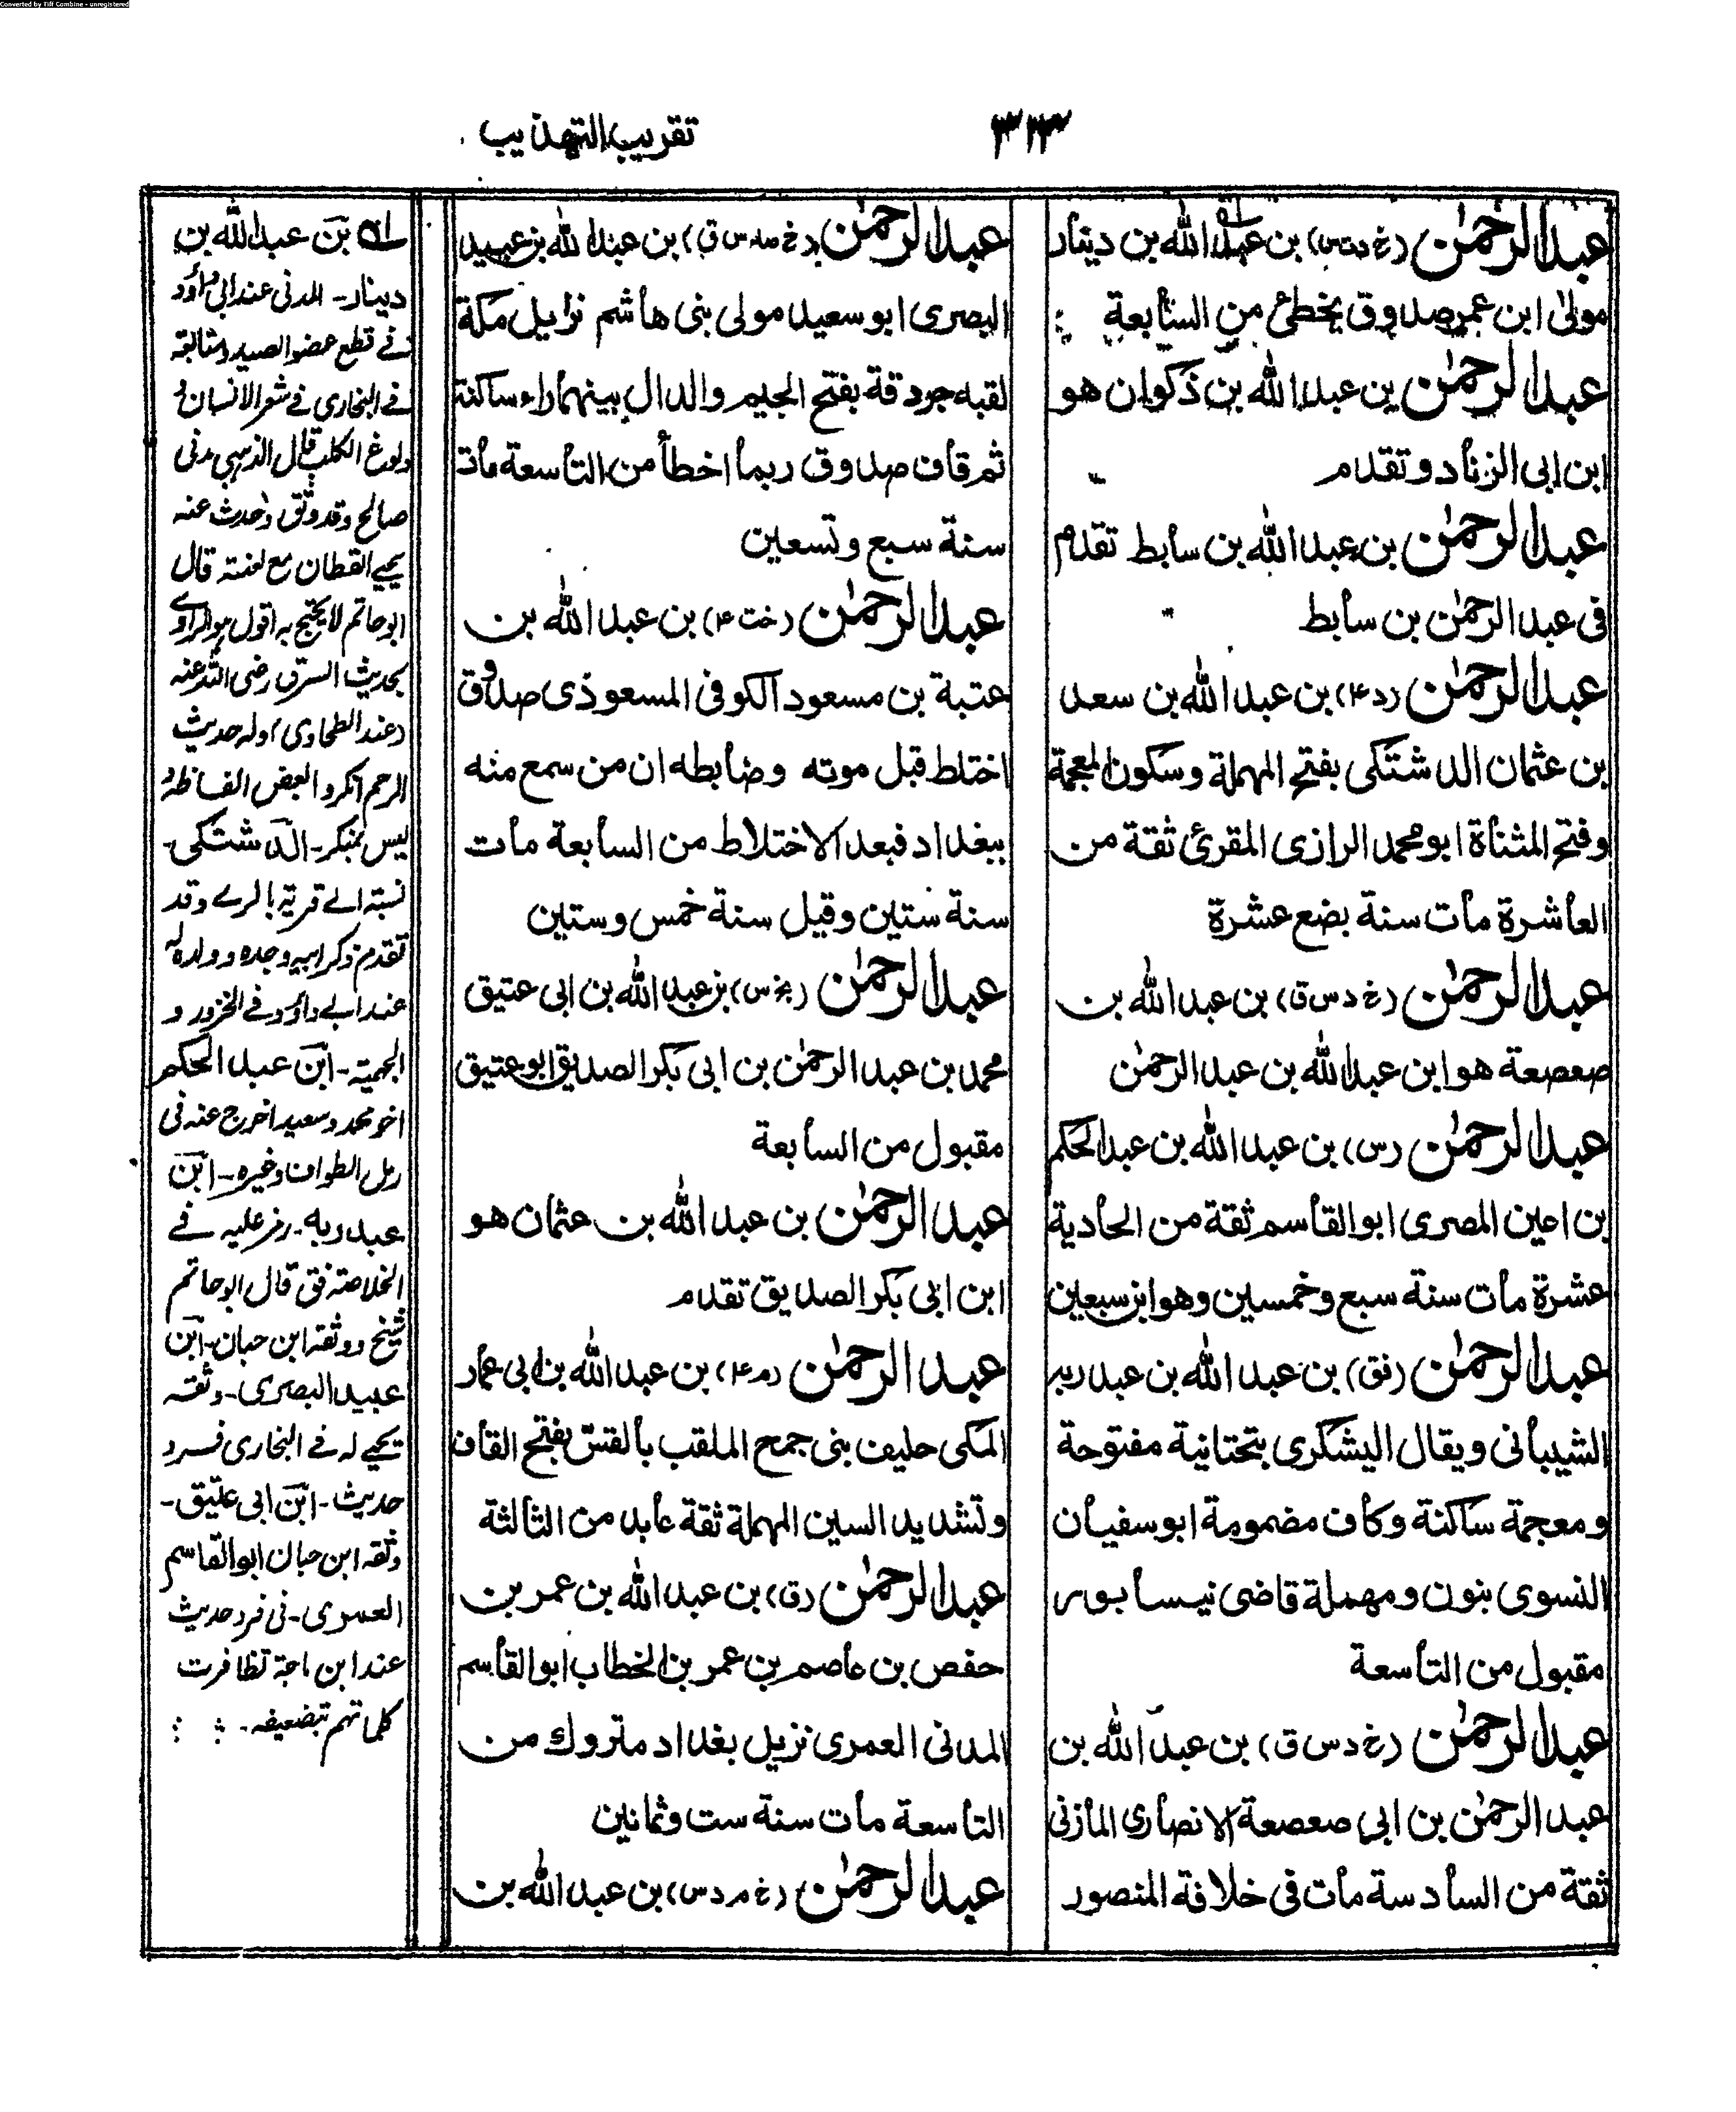 Converted by Tiff Combine - unregistered
٣١٣
تقريب التهذيب
عبد الرحمٰن (خ د ت س) بن عبد الله بن دينار
مولىٰ ابن عمر صدوق يخطئ من السابعة
عبد الرحمٰن بن عبد الله بن ذكوان هو
ابن ابى الزناد و تقدم
عبد الرحمٰن بن عبد الله بن سابط تقدم
فى عبد الرحمٰن بن سابط
عبد الرحمٰن (د ٤) بن عبد الله بن سعد
بن عثمان الدشتكى بفتح المهملة وسكون المعجمة
وفتح المثناة ابو محمد الرازى المقرئ ثقة من
العاشرة مات سنة بضع عشرة
عبد الرحمٰن (خ د س ق) بن عبد الله بن
صعصعة هو ابن عبد الله بن عبد الرحمٰن
عبد الرحمٰن (س) بن عبد الله بن عبد الحكم
بن اعين المصرى ابو القاسم ثقة من الحادية
عشرة مات سنة سبع وخمسين وهو ابن سبعين
عبد الرحمٰن (فق) بن عبد الله بن عبد ربه
الشيبانى ويقال اليشكرى بتحتانية مفتوحة
ومعجمة ساكنة وكاف مضمومة ابو سفيان
النسوى بنون ومهملة قاضى نيسابور
مقبول من التاسعة
عبد الرحمٰن (خ د س ق) بن عبد الله بن
عبد الرحمٰن بن ابى صعصعة الانصارى المازنى
ثقة من السادسة مات فى خلافة المنصور
عبد الرحمٰن (خ صد س ق) بن عبد الله بن عبيد
البصرى ابو سعيد مولى بنى هاشم نزيل مكة
لقبه جردقة بفتح الجيم والدال بينهما راء ساكنة
ثم قاف صدوق ربما اخطأ من التاسعة مات
سنة سبع وتسعين
عبد الرحمٰن (خت ٤) بن عبد الله بن
عتبة بن مسعود الكوفى المسعودى صدوق
اختلط قبل موته وضابطه ان من سمع منه
ببغداد فبعد الاختلاط من السابعة مات
سنة ستين وقيل سنة خمس وستين
عبد الرحمٰن (بخ س) بن عبد الله بن ابى عتيق
محمد بن عبد الرحمٰن بن ابى بكر الصديق ابو عتيق
مقبول من السابعة
عبد الرحمٰن بن عبد الله بن عثمان هو
ابن ابى بكر الصديق تقدم
عبد الرحمٰن (م ٤) بن عبد الله بن ابى عمار
المكى حليف بنى جمح الملقب بالقس بفتح القاف
وتشديد السين المهملة ثقة عابد من الثالثة
عبد الرحمٰن (ق) بن عبد الله بن عمر بن
حفص بن عاصم بن عمر بن الخطاب ابو القاسم
المدنى العمرى نزيل بغداد متروك من
التاسعة مات سنة ست وثمانين
عبد الرحمٰن (خ م د س) بن عبد الله بن
له بن عبد الله بن
دينار- المدنى عند ابى داؤد
فے قطع عضو الصيد و متابعة
فے البخارى فے شعر الانسان و
ولوغ الكلب قال الذهبى مدنى
صالح وقد وثق وحدث عنه
يحيے القطان مع تعنته قال
ابو حاتم لا يحتج به اقول هو الراوے
بحديث السرق رضى الله عنه
(عند الطحاوى) وله حديث
الرحم انكروا لبعض الفاظه و
ليس بمنكر- الدشتكى-
نسبة الے قرية بالرے وقد
تقدم ذكر ابيه وجده وولده له
عند ابے داؤد فے الخز و
الجهمية- ابن عبد الحكم
اخو محمد وسعيد اخرج عنه فى
رمل الطواف وغيره- ابن
عبد ربه- رمز عليه فے
الخلاصة فق قال ابو حاتم
شيخ ووثقه ابن حبان- ابن
عبيد البصرى- وثقه
يحيے له فے البخارى فرد
حديث- ابن ابى عتيق-
وثقه ابن حبان ابو القاسم
العمرى- فى فرد حديث
عند ابن ماجة تظافرت
كلماتهم بتضعيفه-